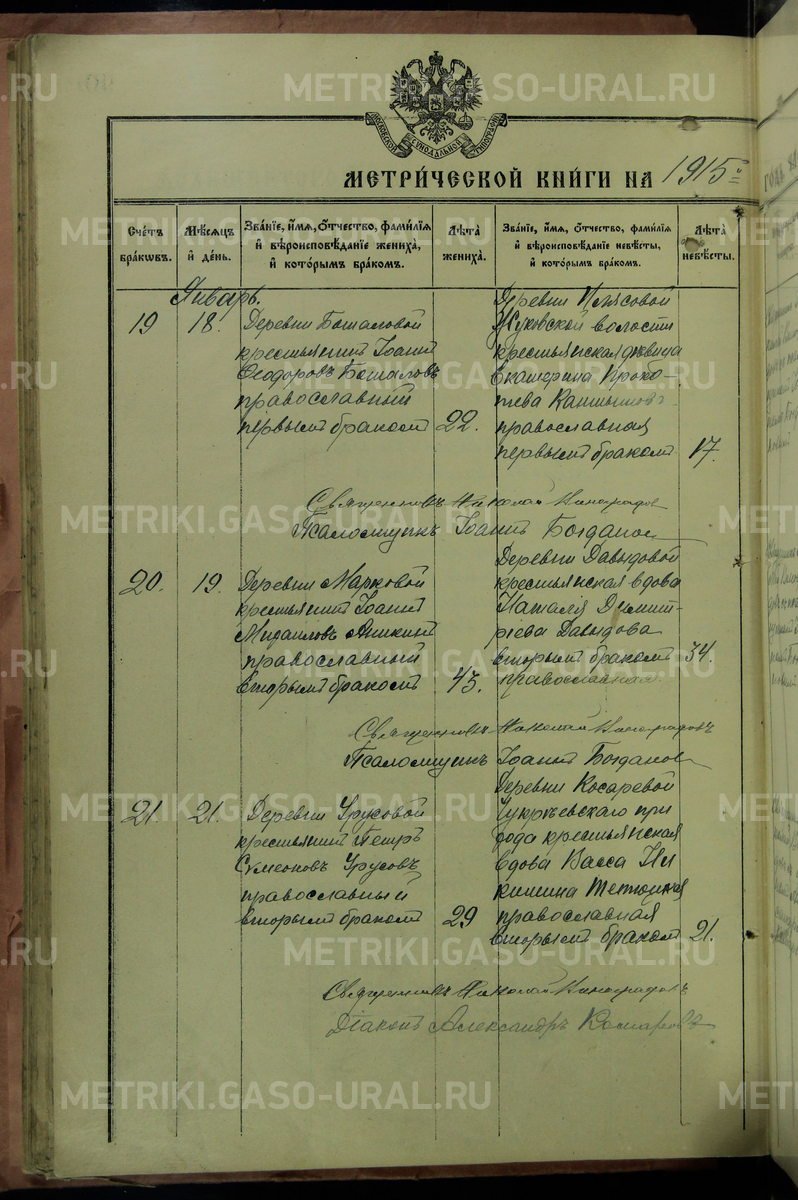 METRIKI.GASO-URAL.RU
МОСКОВСКОЙ СѴНОДАЛЬНОЙ ТИПОГРАФІИ
МЕТРИ́ЧЕСКОЙ КНИ́ГИ НА 1915 г.
Сче́тъ бра́кѡвъ.
Мѣ́сяцъ и́ де́нь.
Зва́нїе, и́мѧ, ѻ́тчество, фами́лїѧ и́ вѣроисповѣ́данїе жениха̀, и́ кото́рымъ бра́комъ.
Лѣ́та жениха̀.
Зва́нїе, и́мѧ, ѻ́тчество, фами́лїѧ и́ вѣроисповѣ́данїе невѣ́сты, и́ кото́рымъ бра́комъ.
Лѣ́та невѣ́сты.
Январь.
19
18.
Деревни Боталовой
крестьянинъ Іоаннъ
Ѳеодоровъ Боталовъ
православный
первымъ бракомъ
22.
Деревни
волости
крестьянская девица
Екатерина Проко-
пьева
православная
первымъ бракомъ
17.
Священникъ Николай Виноградов
Псаломщикъ Іоаннъ Богданов
20.
19.
Деревни Марковой
крестьянинъ Іоаннъ
Михаиловъ
православный
вторымъ бракомъ
43.
Деревни Давыдовой
крестьянская вдова
Наталія Димит-
ріева Давыдова
вторымъ бракомъ
православная
34.
Священникъ Николай Виноградовъ
Псаломщикъ Іоаннъ Богданов
21.
21.
Деревни Урусовой
крестьянинъ Петръ
Сѵмеоновъ Урусовъ
православный
вторымъ бракомъ
29
Деревни Косаревой
при
хода крестьянская
вдова Васса Ни
китина
православная
вторымъ бракомъ
21.
Священникъ Николай Виноградовъ
Діаконъ Александръ